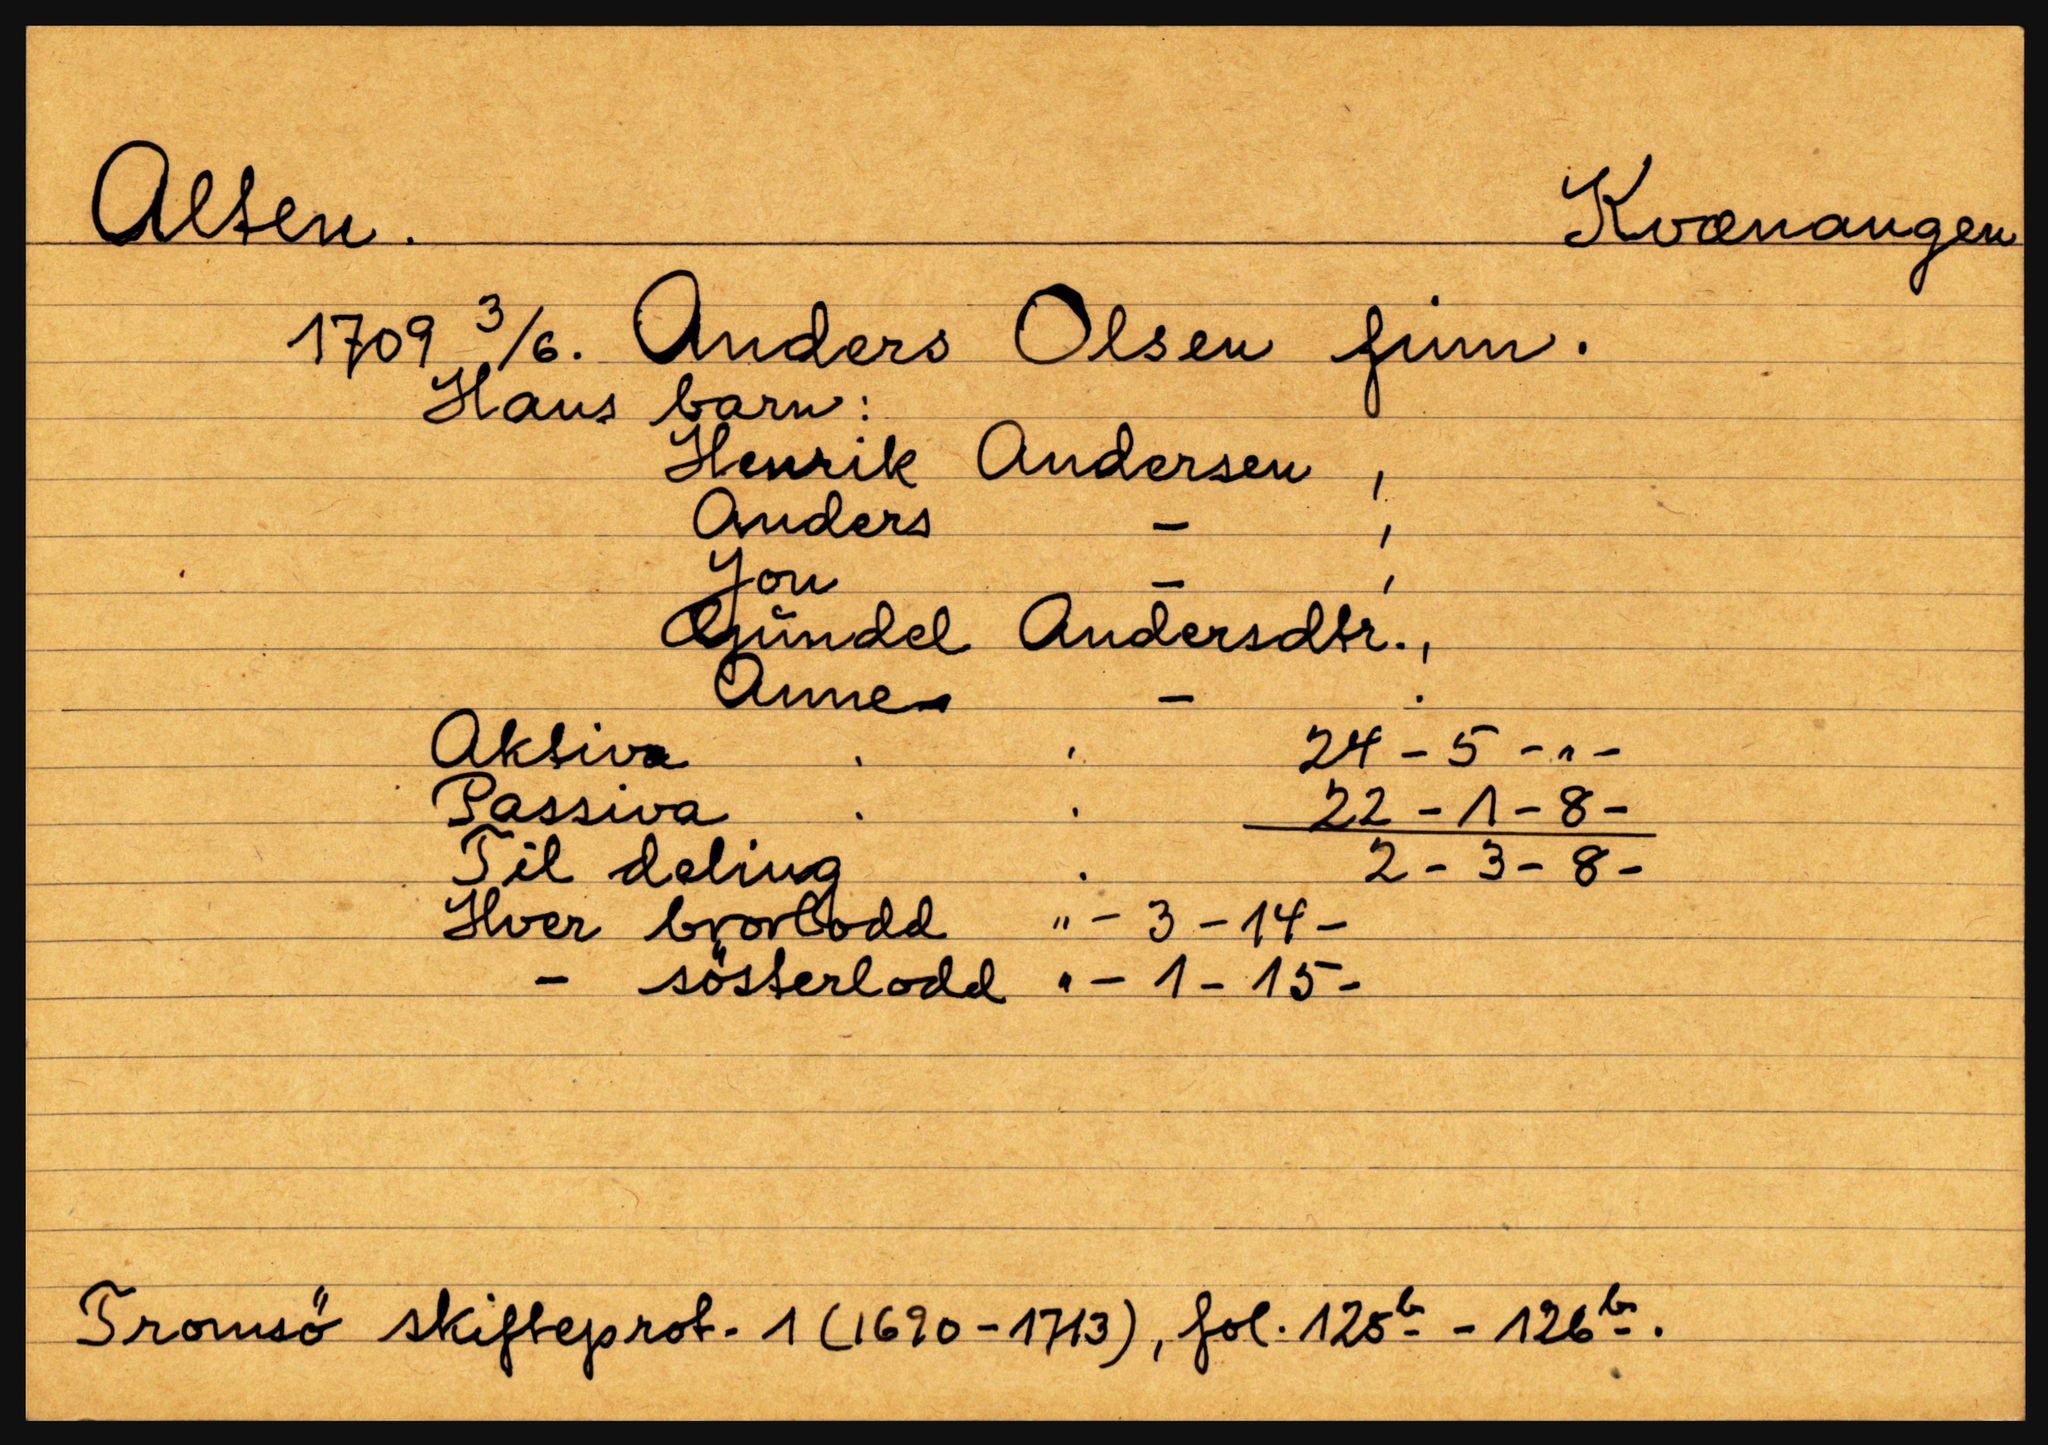 Alten. Kvænangen
1709 3/6. Anders Olsen finn.
Hans barn:
Henrik Andersen,
Anders - ,
Jon - ,
Gundel Andersdtr.,
Anne - .
Aktiva . . 24 - 5 - " -
Passiva . . 22 - 1 - 8 -
Til deling . 2 - 3 - 8 -
Hver brorlodd " - 3 - 14 -
- sösterlodd " - 1 - 15 -
Tromsö skifteprot. 1 (1690-1713), fol. 125b - 126b.